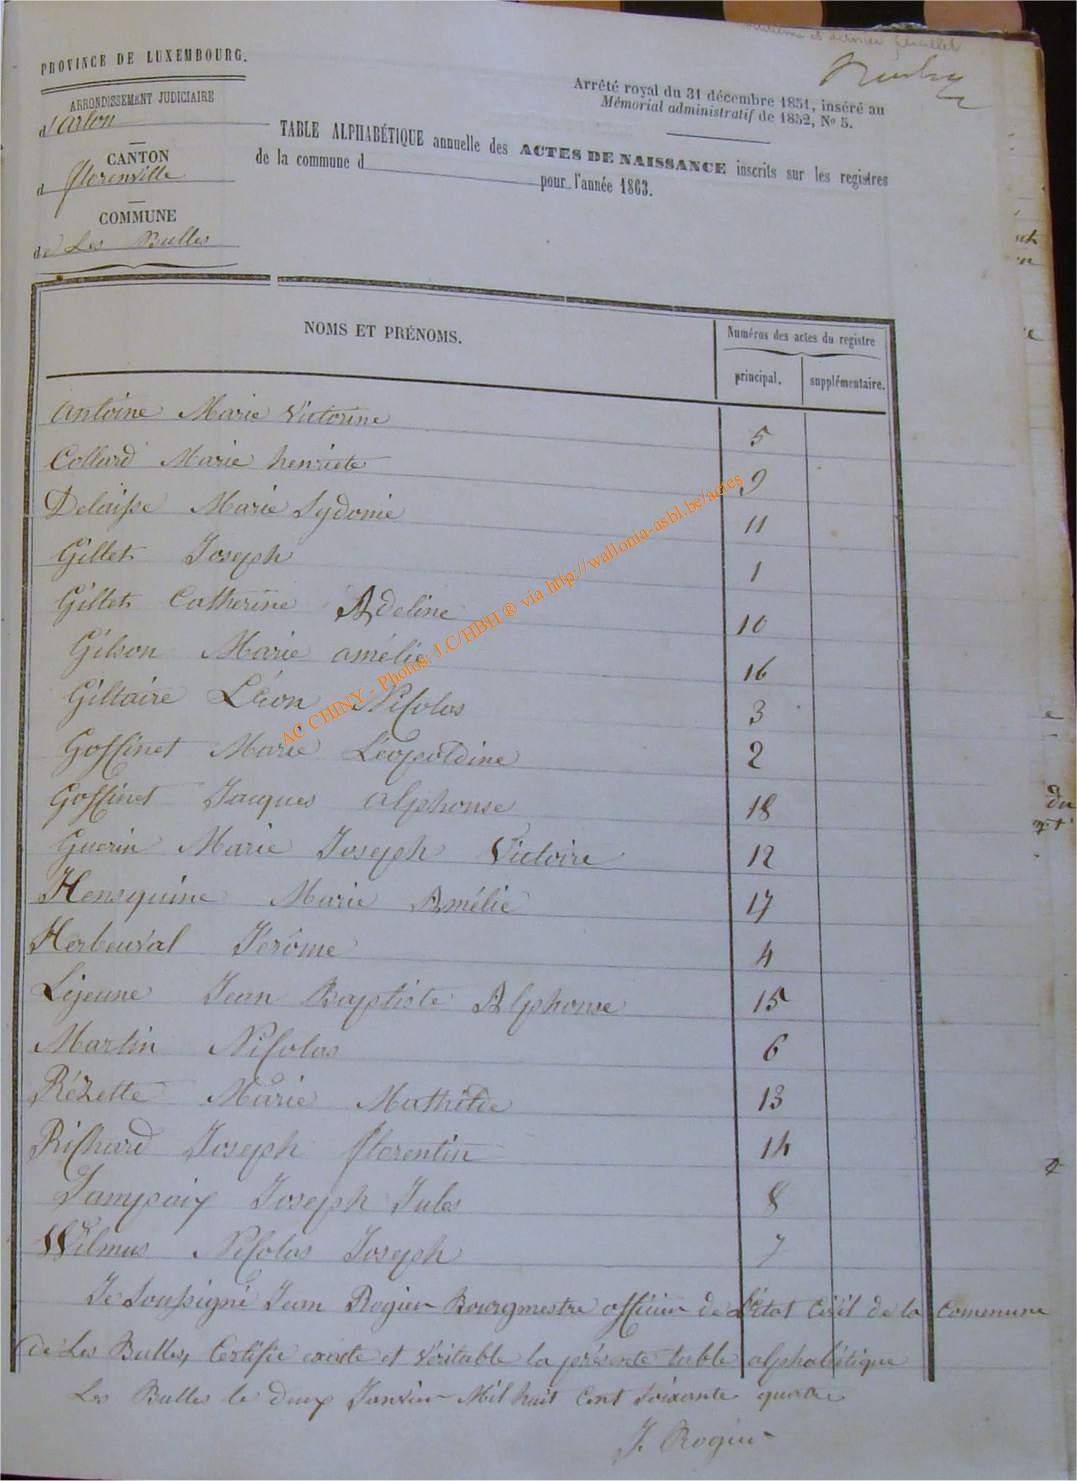 et dernier feuillet
PROVINCE DE LUXEMBOURG.
ARRONDISSEMENT JUDICIAIRE
d'arlon
CANTON
d florenville
COMMUNE
de Les Bulles
Arrêté royal du 31 décembre 1851, inséré au
Mémorial administratif de 1852, No 5.
TABLE ALPHABÉTIQUE annuelle des ACTES DE NAISSANCE inscrits sur les registres
de la commune d pour l'année 1863.
NOMS ET PRÉNOMS.
Numéros des actes du registre
principal. supplémentaire.
Antoine Marie Victorine 5
Collard Marie henriete 9
Delaisse Marie Sydonie 11
Gillet Joseph 1
Gillet Catherine Adeline 10
Gilson Marie amélie 16
Giltaire Léon Nicolas 3
Goffinet Marie Léopoldine 2
Goffinet Jacques alphonse 18
Guerin Marie Joseph Victoire 12
Hensquine Marie Amélie 17
Herbeuval Jérôme 4
Lejeune Jean Baptiste Alphonse 15
Martin Nicolas 6
Rézette Marie Mathilde 13
Richard Joseph florentin 14
Sampaix Joseph Jules 8
Wilmus Nicolas Joseph 7
Je Soussigné Jean Rogier Bourgmestre officier de L'état Civil de la Commune
de Les Bulles, Certifie exacte et Véritable la présente table alphabétique
Les Bulles le deux Janvier Mil huit Cent Soixante quatre
J. Rogier
AC CHINY - Photos: J.C/HBH ® via http://wallonia-asbl.be/actes